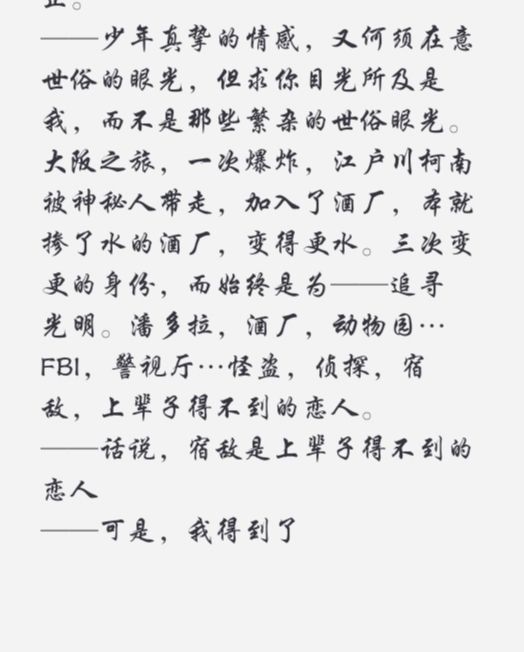 正。
——少年真挚的情感，又何须在意
世俗的眼光，但求你目光所及是
我，而不是那些繁杂的世俗眼光。
大阪之旅，一次爆炸，江户川柯南
被神秘人带走，加入了酒厂，本就
掺了水的酒厂，变得更水。三次变
更的身份，而始终是为——追寻
光明。潘多拉，酒厂，动物园…
FBI，警视厅…怪盗，侦探，宿
敌，上辈子得不到的恋人。
——话说，宿敌是上辈子得不到的
恋人
——可是，我得到了